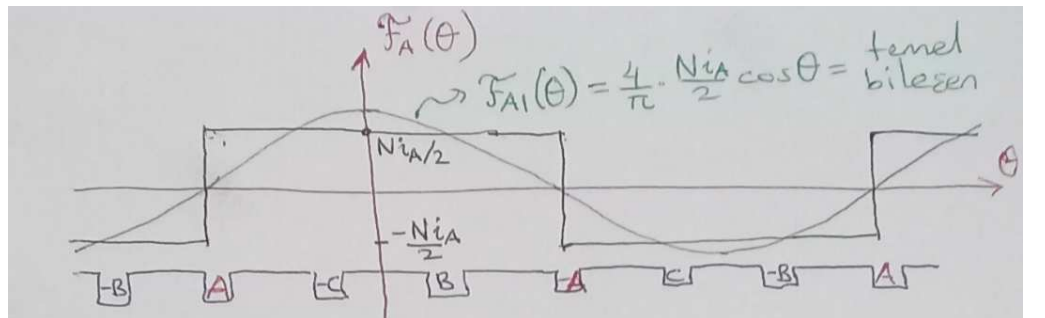 𝓕A(θ)
𝓕A1(θ) = 4/π · NiA/2 cosθ = temel bileşen
NiA/2
θ
-NiA/2
-B A -C B -A C -B A